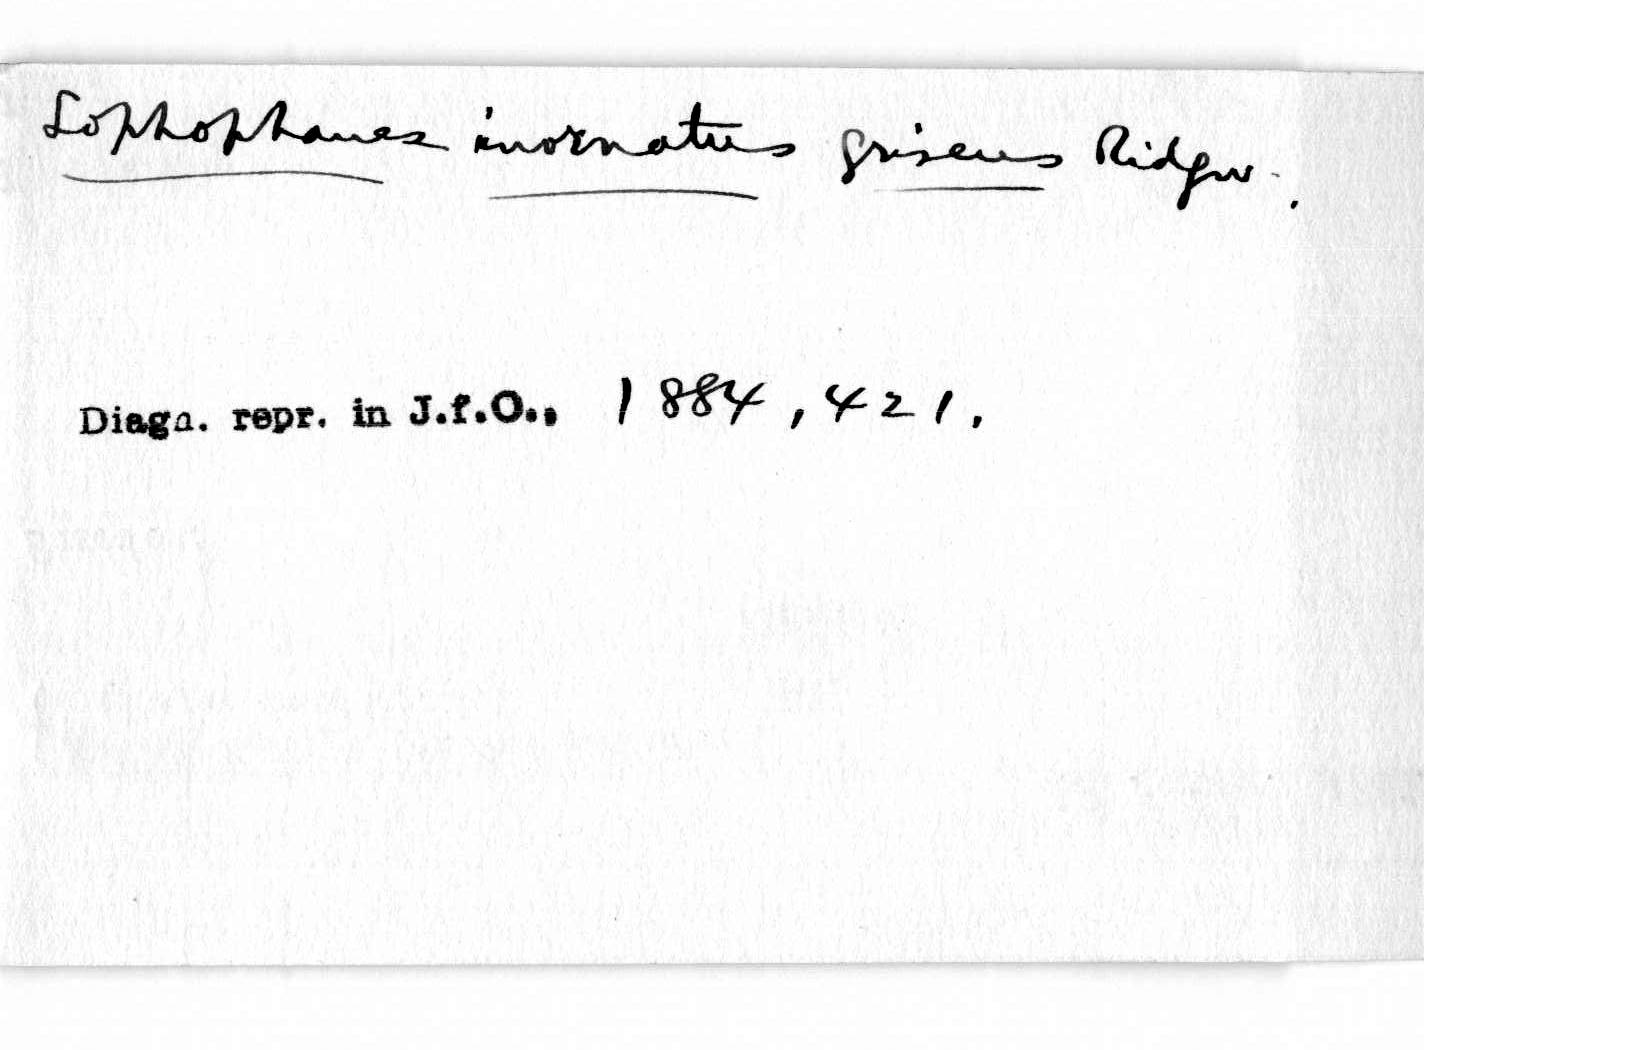 Lophophanes inornatus griseus Ridgw.
Diagn. repr. in J.f.O., 1884, 421.